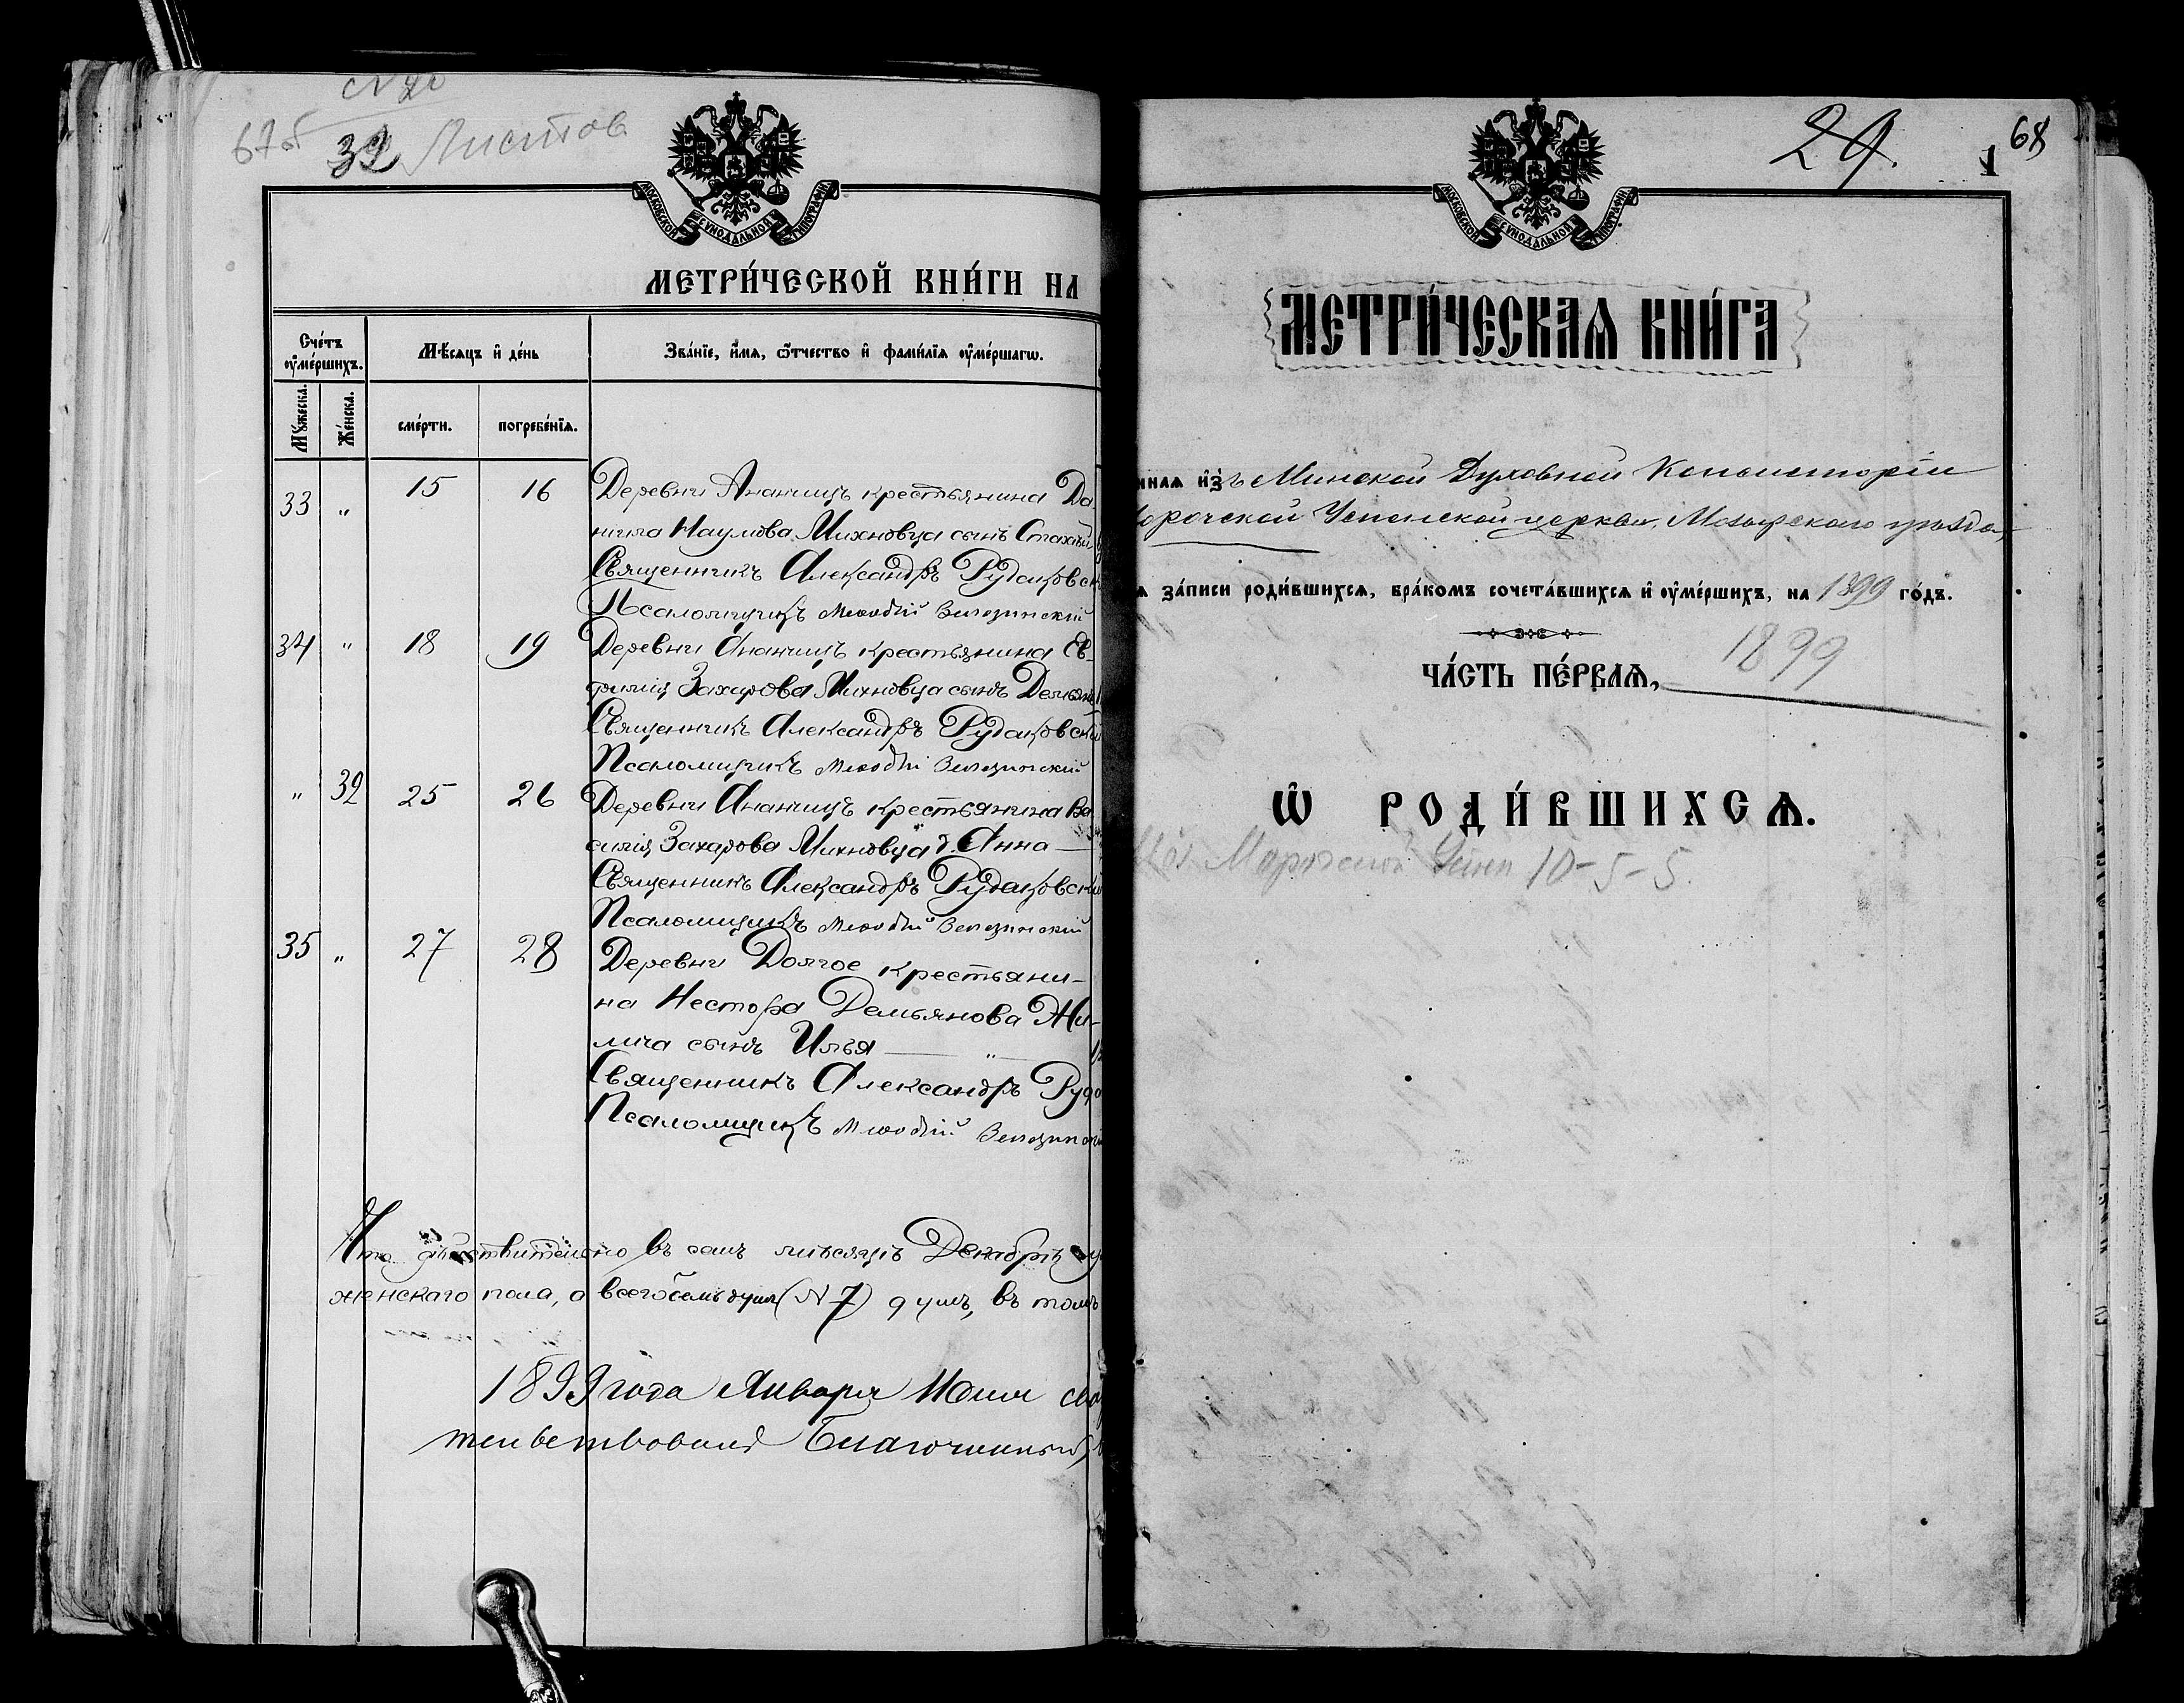 67об
32 Листов
МОСКОВСКОЙ СУНОДАЛЬНОЙ ТИПОГРАФІИ
МЕТРИ́ЧЕСКОЙ КНИ́ГИ НА
Сче́тъ ᲂу҆ме́ршихъ.
Мѣ́сяцъ и҆ де́нь
Зва́нїе, и҆́мѧ, ѻ҆́тчество и҆ фами́лїѧ ᲂу҆ме́ршагѡ.
Мꙋ́жеска.
Же́нска.
сме́рти.
погребе́нїѧ.
33 " 15 16 Деревни Ананчицъ крестьянина Да-
нiила Наумова Михновца сынъ Стахій
Священникъ Александръ Рудаковск
Псаломщикъ Меѳодій
34 " 18 19 Деревни Ананчицъ крестьянина Ев-
фимія Захарова Михновца сынъ Демьянъ
Священникъ Александръ Рудаковскій
Псаломщикъ Меѳодій
" 32 25 26 Деревни Ананчицъ крестьянина Ва-
силія Захарова Михновца д. Анна —
Священникъ Александръ Рудаковскій
Псаломщикъ Меѳодій
35 " 27 28 Деревни Долгое крестьяни-
на Нестора Демьянова Жи-
лича сынъ Илья — " —
Священникъ Александръ Рудо
Псаломщикъ Меѳодій
Что дѣйствительно въ семъ мѣсяцѣ Декабрѣ
женскаго пола, а всего семь душъ (N 7) душъ, въ томъ
1899 года Января
тельствовалъ Благочинный,
29.
1
68
МОСКОВСКОЙ СУНОДАЛЬНОЙ ТИПОГРАФІИ
МЕТРИ́ЧЕСКАѦ КНИ́ГА
ннаѧ и҆зъ Минской Духовной Консисторіи
орочской Успенской церкви, Мозырскаго уѣзда,
ѧ за́писи роди́вшихсѧ, бра́комъ сочета́вшихсѧ и҆ ᲂу҆ме́ршихъ, на 1899 го́дъ.
ЧА́СТЬ ПЕ́РВАѦ,
1899
Ѡ҆ РОДИ́ВШИХСѦ.
Морочской 10-5-5.